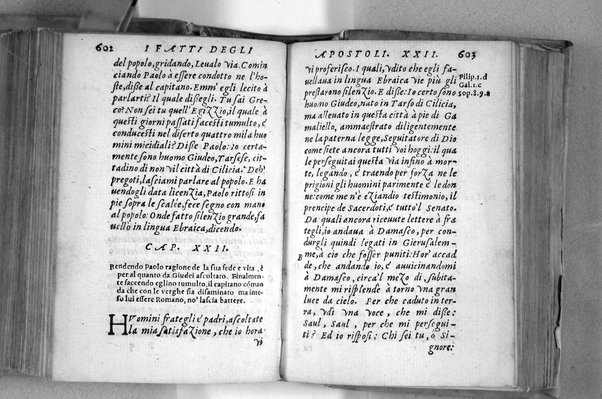 602 I FATTI DEGLI
del popolo, gridando, Leualo via. Comin
ciando Paolo à essere condotto ne l'ho-
ste, disse al capitano. Emm' egli lecito à
parlarti? Il quale disse gli. Tu sai Gre-
co? Non sei tu quell'Egizzio, il quale à
questi giorni passati facesti tumulto, è
conducesti nel diserto quattro mila huo
mini micidiali? Disse Paolo: Io certa-
mente sono huomo Giudeo, Tarsese, cit-
tadino di non vil città di Cilicia: Deh'
pregoti, lasciami parlare al popolo. E ha
vendogli data licenzia, Paolo rittosi in
pie sopra le scalée, fece segno con mano
al popolo: Onde fatto silenzio grande, fa
vello in lingua Ebraica, dicendo.
CAP. XXII.
Rendendo Paolo ragione de la sua fede e vita, è
per al quanto da Giudei ascoltato. Finalmen-
te faccendo eglino tumulto, il capitano cóman
da che con le verghe sia disaminato: ma inte-
so lui essere Romano, no' lascia battere.
HVomini frategli è padri, ascoltate
la mia satisfazione, che io hora
vi
APOSTOLI. XXII. 603
vi proferisco. I quali, vdito che egli fa-
vellaua in lingua Ebraica vie più gli
prestarono silenzio. E disse: Io certo sono
huomo Giudeo, nato in Tarso di Cilicia,
ma alleuato in questa città à pie di Ga
maliello, ammaestrato diligentemente
ne la paterna legge, Seguitatore di Dio
come siete ancora tutti voi hoggi: il qua
le perseguitai questa via infino à mor-
te, legando, è traendo per forza ne le
prigioni gli huomini parimente è le don
ne: come me n'è eziandio testimonio, il
prencipe de Sacerdoti, è tutto'l Senato.
Da quali ancora riceuute lettere à fra
tegli, io andaua à Damasco, per con-
durgli quindi legati in Gierusalem-
me, à cio che fosser puniti: Hor'accad
de, che andando io, è auuicinandomi
à Damasco, circa'l mezo dì, subita-
mente mi risplende à torno vna gran
luce da cielo. Per che caduto in ter-
ra, vdì vna voce, che mi disse:
Saul, Saul, per che mi persegui-
ti? Ed io risposi: Chi sei tu, o Si-
gnore:
Filip.3.d
Gal.1.c
sop.8.9.a
B